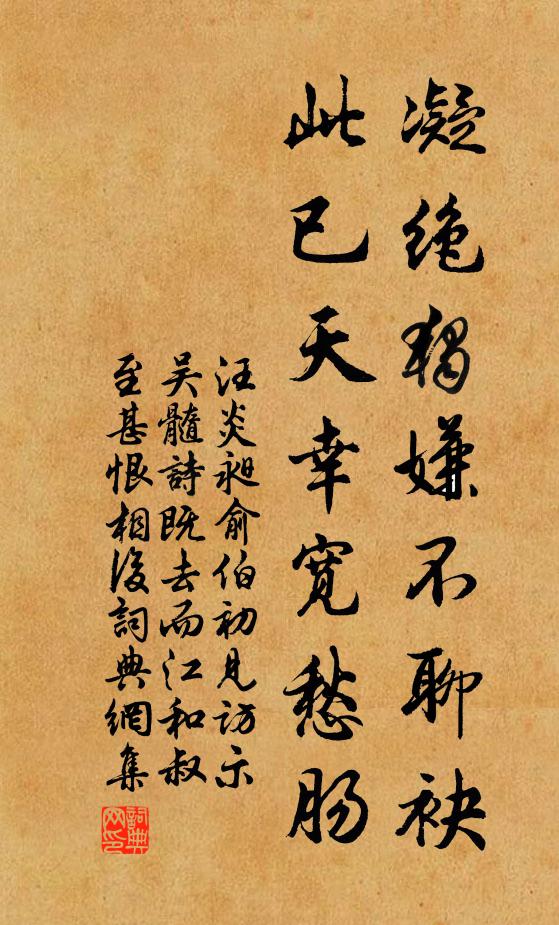 凝絶獨嫌不聊袂
此已天幸寬愁腸
汪炎昶俞伯初見訪示
吴髓詩既去而江和叔
至甚恨相後詞典網集
詞典网印